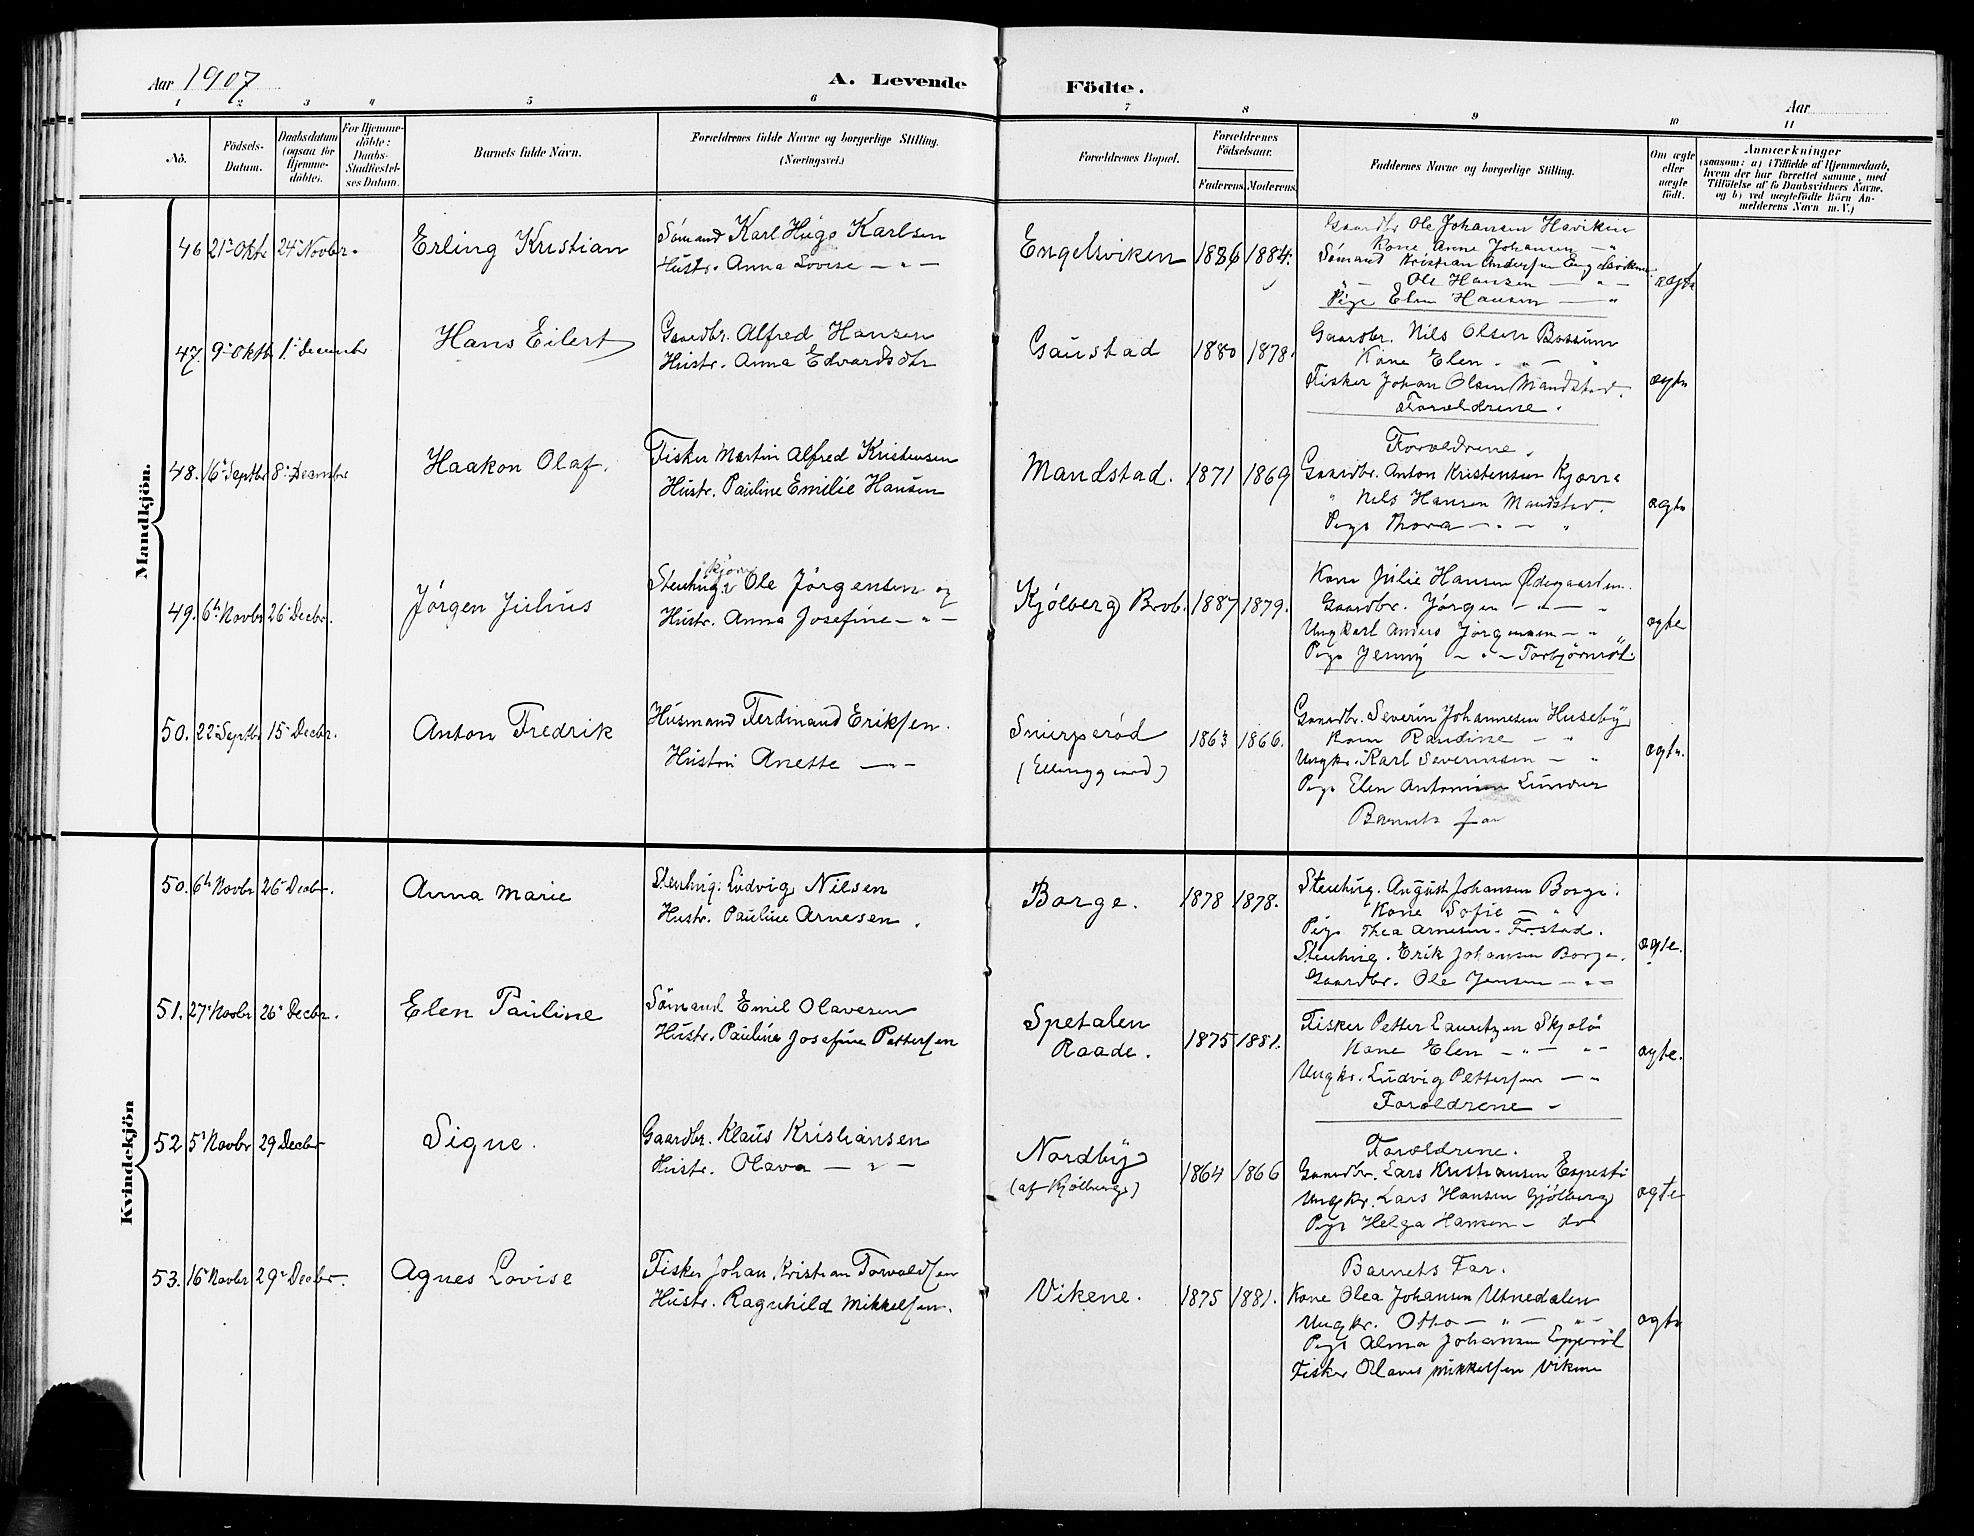 Aar 1907
A. Levende Födte.
Aar
1 2 3 4 5 6 7 8 9 10 11
No.
Födsels-
Datum.
Daabsdatum
(ogsaa for
Hjemme-
döbte).
For Hjemme-
döbte:
Daabs-
Stadfæstel-
ses Datum.
Barnets fulde Navn.
Forældrenes fulde Navne og borgerlige Stilling.
(Næringsvei.)
Forældrenes Bopæl.
Forældrenes
Födselsaar.
Faderens. Moderens.
Faddernes Navne og borgerlige Stilling.
Om ægte
eller
uægte
födt.
Anmærkninger
(saasom: a) i Tilfælde af Hjemmedaab,
hvem der har forrettet samme, med
Tilföielse af to Daabsvidners Navne.
og b) ved uægtefödte Börn An-
melderens Navn m. V.)
Mandkjön.
46 21 Oktr 24 Novbr. Erling Kristian
Sømand Karl Hugo Karlsen
Hustr. Anna Lovise — " —
Engelsviken 1886 1884.
Gaardbr Ole Johansen Haviken
Kone Anne Johansen — "
Sømand Kristian Andersen Engelsviken
" — Ole Hansen — " —
Pige Elen Hansen — "
ægte
47. 9 Oktb 1 December Hans Eilert
Gaardbr. Alfred Hansen
Hustr. Anna Edvardsdtr
Gaustad 1880 1878.
Gaardbr. Nils Olsen Bossum
Kone Elen . " — "
Fisker Johan Olsen Mandstad.
Forældrene.
ægte
48. 16 Septbr 8 Decembr Haakon Olaf.
Fisker Martin Alfred Kristensen
Hustr. Pauline Emilie Hansen
Mandstad. 1871 1869
Forældrene.
Gaardbr. Anton Kristensen Kjærre
" Nils Hansen Mandstad.
Pige Thora — " — "
ægte
49. 6 Novbr 26 Decbr. Jørgen Julius
Stenhug Ole Jørgensen og
Hustr. Anna Josefine — " —
Kjölberg Brob. 1887 1879.
Kone Julie Hansen Ødegaarden
Gaardbr. Jørgen — " — "
Ungkarl Anders Jørgensen — "
Pige Jenny — " — Torbjørnrød.
ægte
50. 22 Septbr 15 Decbr. Anton Fredrik
Husmand Ferdinand Eriksen.
Hustru Anette — " —
Snurperød
1863 1866.
Gaardbr. Severin Johannesen Huseby
Kone Randine — "
Ungkr. Karl Severinsen — "
Pige Elen Antonisen
Barnets far
ægte.
Kvindekjön
50. 6 Novbr 26 Decbr. Anna Marie
Stenhug. Ludvig Nilsen
Hustr. Pauline Arnesen.
Borge. 1878 1878.
Stenhug. August Johansen Borge.
Kone Sofie — "
Pige Thea Arnesen
Stenhug. Erik Johansen Borge.
Gaardbr. Ole Jensen — " —
ægte.
51. 27 Novbr 26 Decbr. Elen Pauline
Sömand Emil Olavesen
Hustr. Pauline Josefine Pettersen
Spetalen
Raade. 1875 1881.
Fisker Petter Lauritzen Skjolö
Kone Elen — " — " —
Ungkr. Ludvig Pettersen — "
Forældrene
ægte.
52 5 Novbr 29 Decbr Signe.
Gaardbr. Klaus Kristiansen
Hustr. Olava — " —
Nordby
(af Kjölberg) 1864 1866
Forældrene.
Gaardbr. Lars Kristiansen
Ungkr. Lars Hansen Gjölberg
Pige Helga Hansen — do
ægte
53. 16 Novbr 29 Decbr. Agnes Lovise
Fisker Johan Kristian Torvaldsen
Hustr. Ragnhild Mikkelsen.
Vikene. 1875 1881.
Barnets Far.
Kone Olea Johansen Utnedalen
Ungkr. Otto — " — " —
Pige Alma Johansen
Fisker Olaves Mikkelsen Vikene
ægte